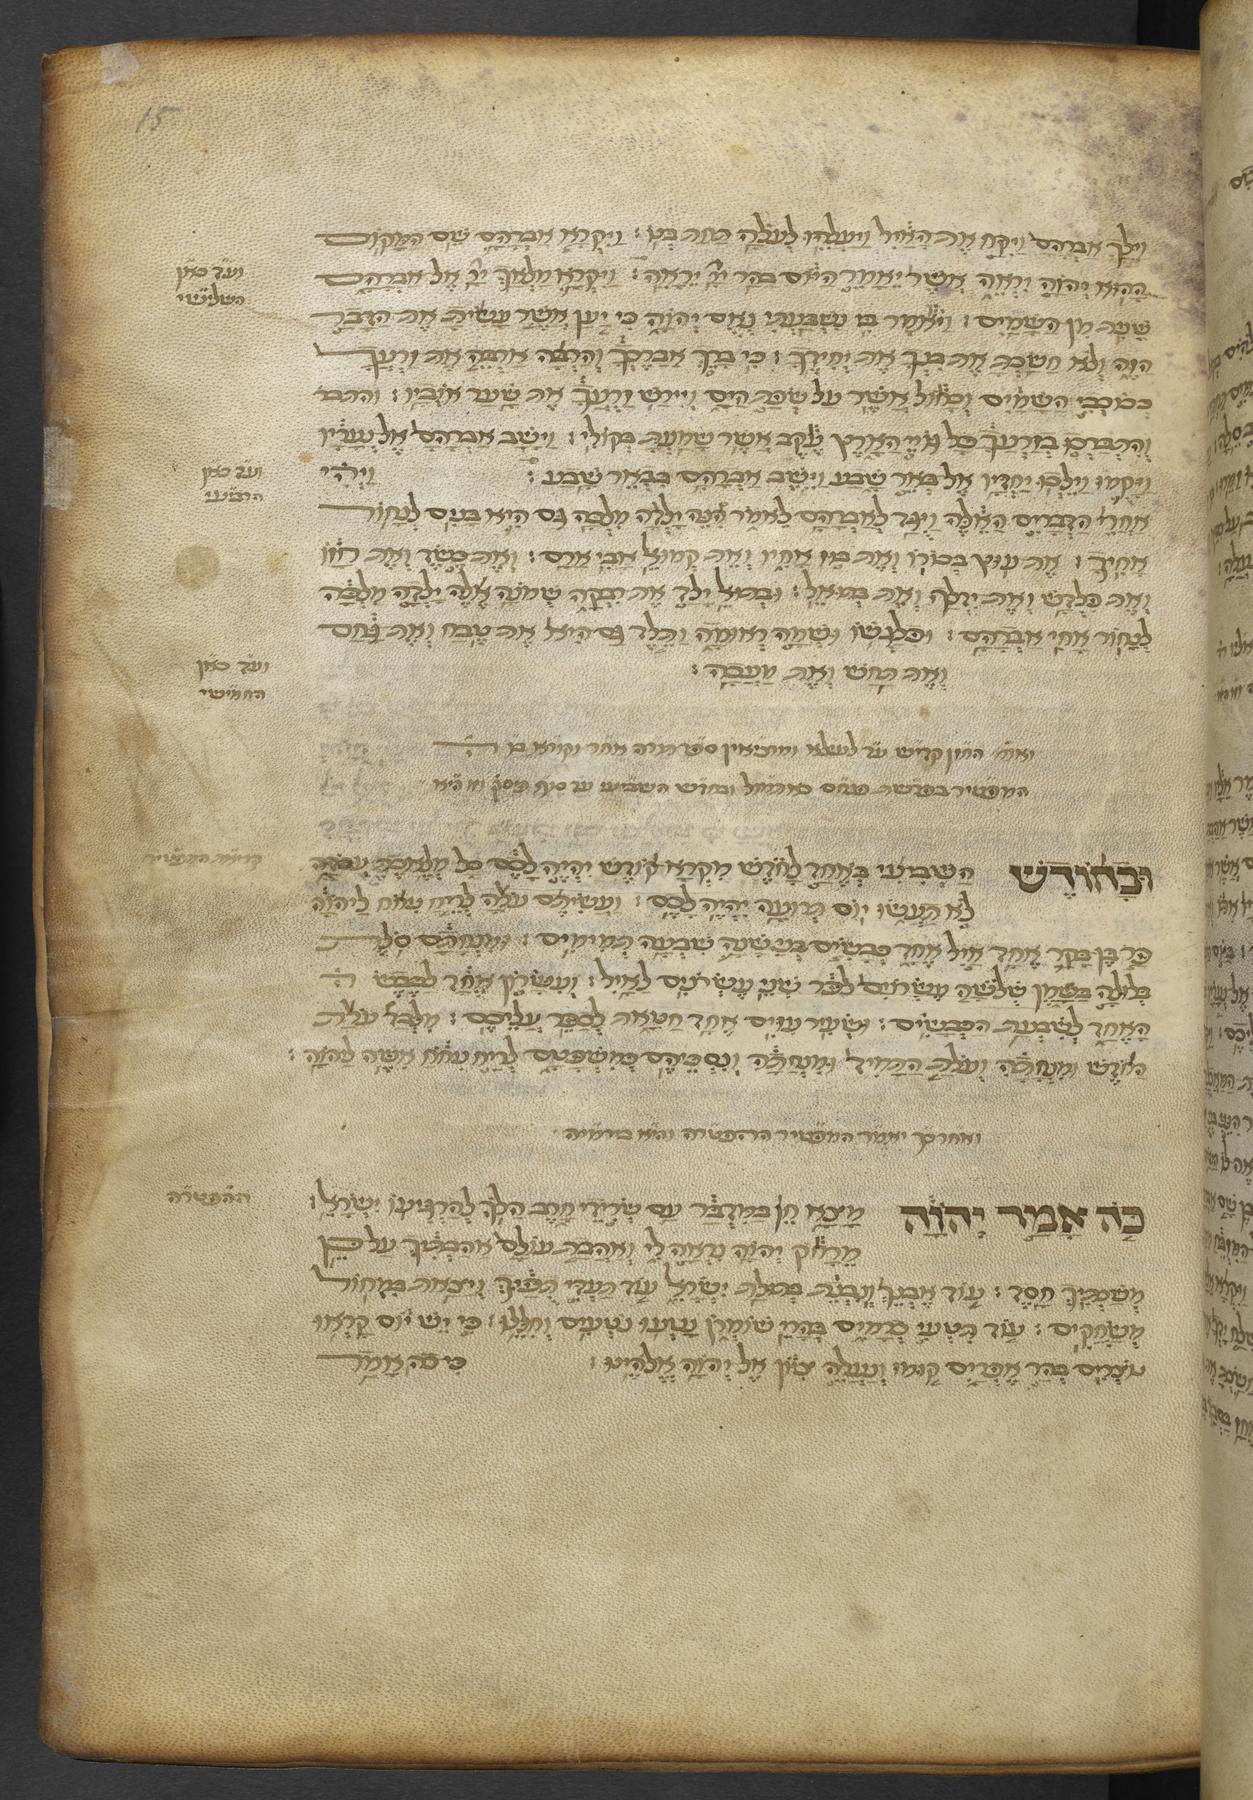 15
וילך אברהם ויקח את האיל ויעלהו לעלה תחת בנו : ויקרא אברהם שם המקום
ההוא יהוה יראה אשר יאמר היום בהר יי יראה : ויקרא מלאך יי אל אברהם
ועד כאן
השלישי
שנית מן השמים : ויאמר בי נשבעתי נאם יהוה כי יען אשר עשית את הדבר
הזה ולא חשכת את בנך את יחידך : כי ברך אברכך והרבה ארבה את זרעך
ככוכבי השמים וכחול אשר על שפת הים ויירש זרעך את שער אויביו : והתבר
והתברכו בזרעך כל גויי הארץ עקב אשר שמעת בקולי : וישב אברהם אל נעריו
ויקמו וילכו יחדיו אל באר שבע וישב אברהם בבאר שבע : ויהי
ועד כאן
הרביעי
אחרי הדברים האלה ויגד לאברהם לאמר הנה ילדה מלכה גם היא בנים לנחור
אחיך : את עוץ בכורו ואת בוז אחיו ואת קמואל אבי ארם : ואת כשד ואת חזו
ואת פלדש ואת ידלף ואת בתואל : ובתואל ילד את רבקה שמנה אלה ילדה מלכה
לנחור אחי אברהם : ופלגשו ושמה ראומה ותלד גם היא את טבח ואת גחם
ואת תחש ואת מעכה :
ועד כאן
החמישי
ואחר החזן קדיש עד לעלא ומוציאין ספר תורה אחר וקורא בו
המפטיר בפרשת פנחס ובחדש השביעי עד סוף
ובחודש השביעי באחד לחדש מקרא קודש יהיה לכם כל מלאכת עבודה
לא תעשו יום תרועה יהיה לכם : ועשיתם עלה לריח ניחח ליהוה
פר בן בקר אחד איל אחד כבשים בני שנה שבעה תמימים : ומנחתם סלת
בלולה בשמן שלשה עשרנים לפר שני עשרנים לאיל : ועשרון אחד לכבש ה
האחד לשבעת הכבשים : ושעיר עזים אחד חטאת לכפר עליכם : מלבד עלת
החדש ומנחתה ועלת התמיד ומנחתה ונסכיהם כמשפטם לריח ניחח אשה ליהוה :
ואחר כך יאמר המפטיר ההפטרה והיא בירמיה
ההפטרה
כה אמר יהוה מצא חן במדבר עם שרידי חרב הלוך להרגיעו ישראל :
מרחוק יהוה נראה לי ואהבת עולם אהבתיך על כן
משכתיך חסד : עוד אבנך ונבנית בתולת ישראל עוד תעדי תופיך ויצאת במחול
משחקים : עוד תטעי כרמים בהרי שומרון נטעו נוטעים וחללו : כי יש יום קראו
נוצרים בהר אפרים קומו ונעלה ציון אל יהוה אלהינו : כי כה אמר